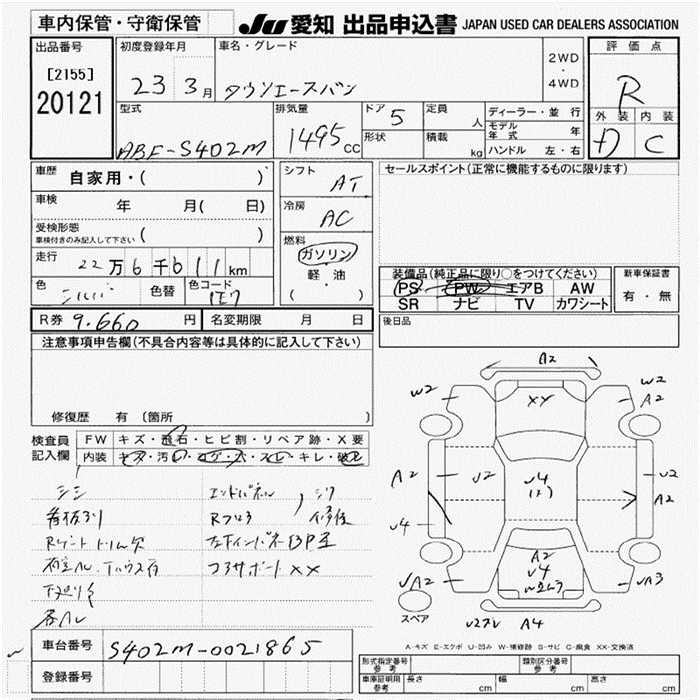 車内保管・守衛保管
JU 愛知 出品申込書 JAPAN USED CAR DEALERS ASSOCIATION
出品番号 [2155] 20121
初度登録年月 23 3月
車名・グレード タウンエースバン
2WD・4WD
評価点 R
外装 内装 C
型式 ABF-S402M
排気量 1495cc
ドア 5
形状
定員 人
積載 kg
ディーラー・並行
モデル年式 年
ハンドル 左・右
車歴 自家用・( )
車検 年 月( 日)
受検形態 ( )
車検付きのみ記入して下さい
走行 22万6千611km
色 シルバ 色替 色コード 1E7
シフト AT
冷房 AC
燃料 ガソリン 軽・油 ( ・ )
セールスポイント(正常に機能するものに限ります)
装備品(純正品に限り○をつけてください)
PS PW エアB AW
SR ナビ TV カワシート
新車保証書 有・無
R券 9.660円 名変期限 月 日
後日品
注意事項申告欄(不具合内容等は具体的に記入して下さい)
修復歴 有 (箇所 )
検査員記入欄
FW キズ・飛石・ヒビ割・リペア跡・X要
内装 キズ・汚レ・コゲ・穴・スレ・キレ・破レ
エンドパネル
フロアサポート XX
A2
W2 W2
A2
XX
A2 U2 U4 U2
A2
U4
A2
U4
A2 A3
A4
スペア
A-キズ E-エクボ U-凹み W-補修跡 S-サビ C-腐食 XX-交換済
車台番号 S402M-0021865
登録番号
形式指定番号 参考 類別区分番号 参考
車庫証明用 参考 長さ cm 幅 cm 高さ cm